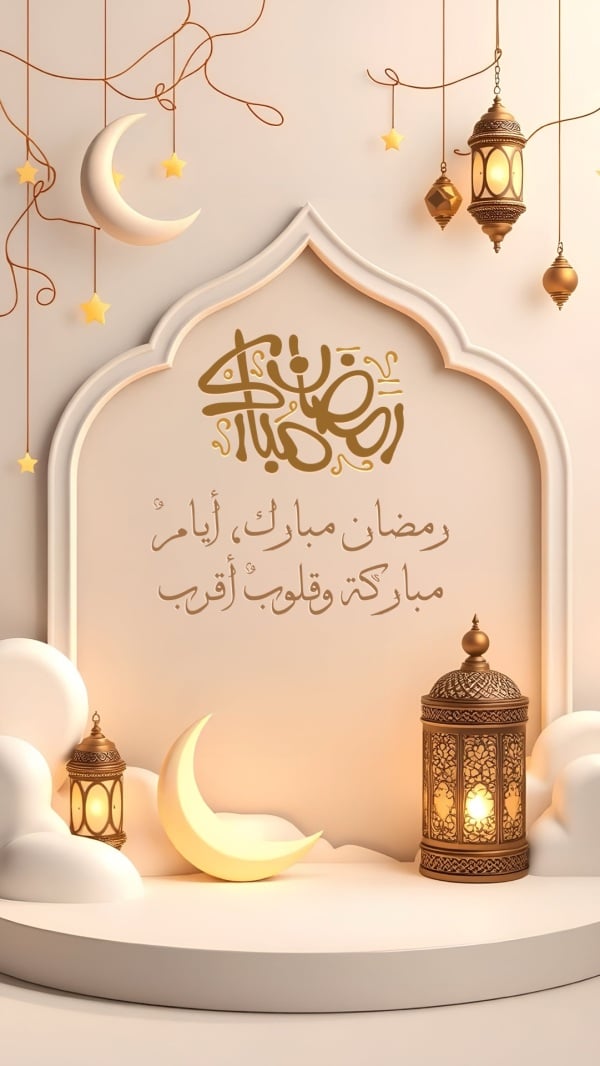 رمضان مبارك
رمضان مبارك، أيامٌ
مباركة وقلوبٌ أقرب